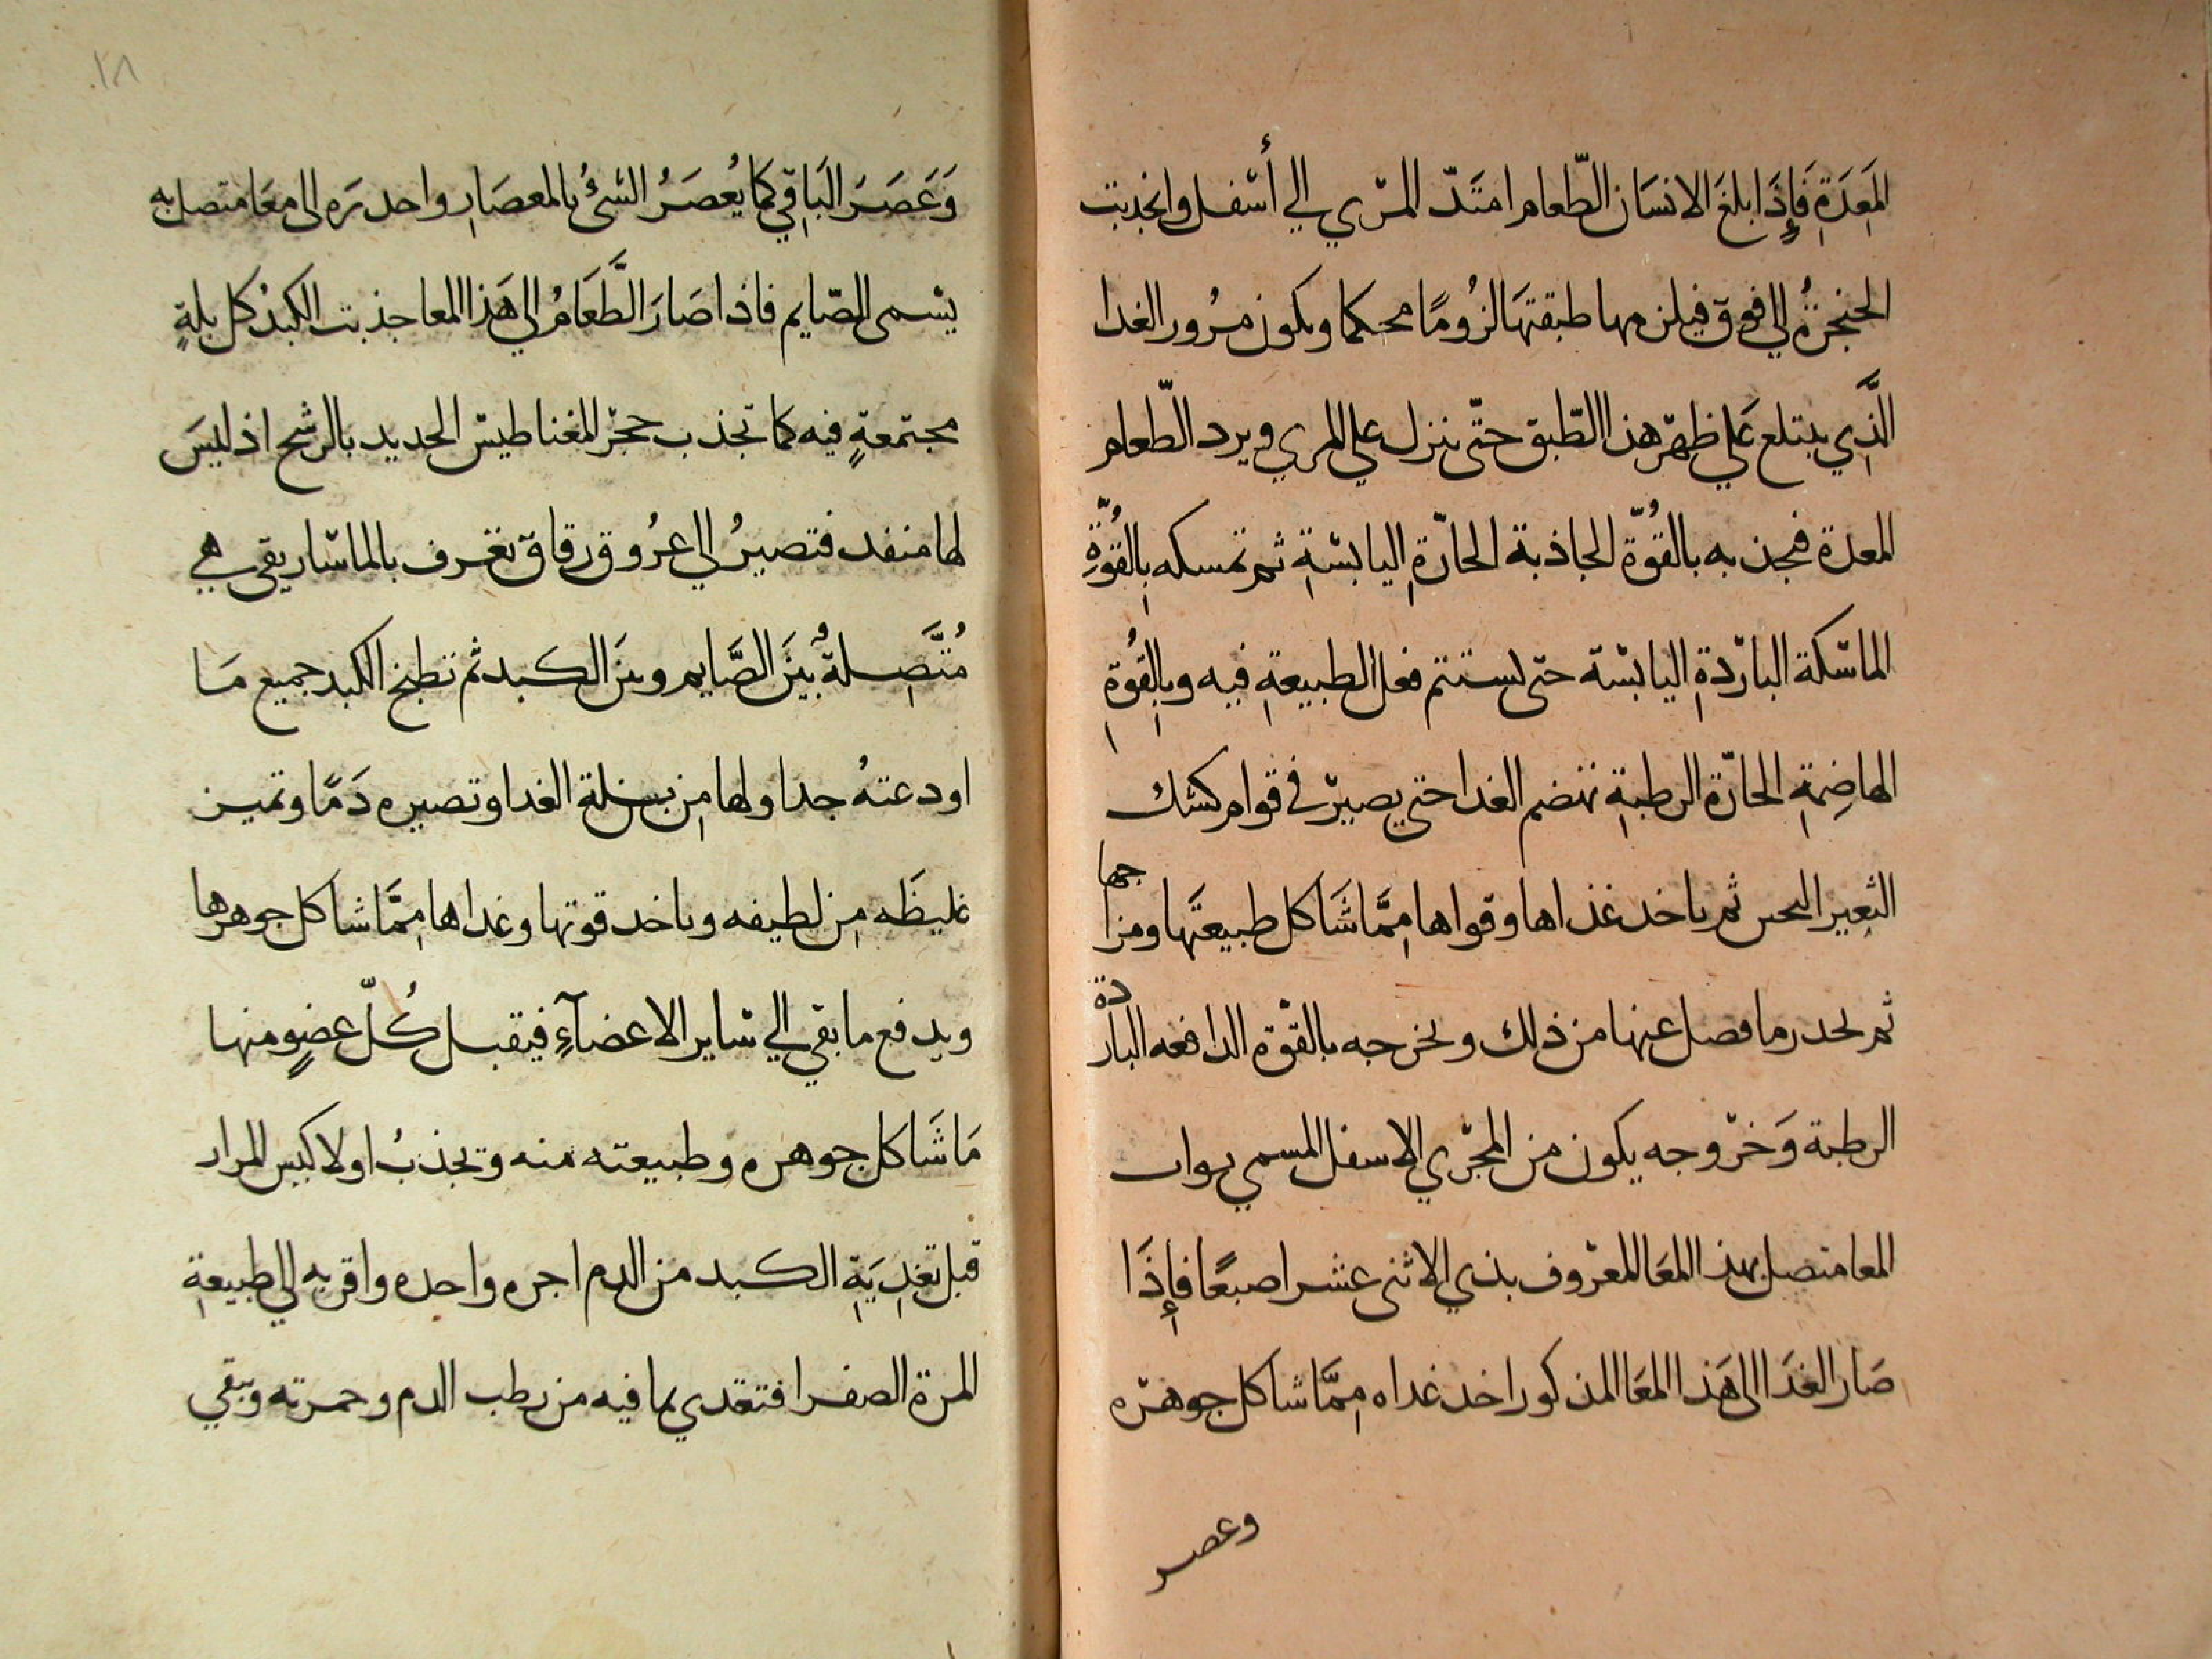 المَعِدَةِ فَإِذَا بلغَ الانسَان الطّعام امتَدّ المرّي الي أسْفل وانجذبت
الحنجرةُ الي فوق فيلزمها طبقتهَا لزُومًا محكما ويكون مرُور الغدا
الَّذِي يبتلع عَلي ظهرّ هذا الطّبق حتّى ينزل علي المري ويرد الطّعام
المعدة فيجذبه بالقُوّة الجاذبة الحارّةِ اليابسَةِ ثم تمسكه بِالقُوّةِ
الماسّكة البارّدةِ اليابسّة حتى يستتم فعل الطبيعةِ فيه وبِالقُوةِ
الهاضِمةِ الحارّة الرطبةِ تهضم الغدا حتي يصيرّ في قوام كشك
الشعير النحن ثم ياخد غذاها وقواها مِمَّا شَاكل طبيعتَها ومزاجها
ثم لحدر ما فصل عنها من ذلك وتخرجه بالقوّة الدافعه الباردة
الرطبة وَخرّوجه يكون من المجرّي الاسفل المسمي بواب
المعا متصل بهذا المعَا المعرّوف بذي الاثنى عشر اصبعًا فإِذَا
صَار الغدَا الى هَذا المعَا المذكور اخد غداه مِمَّا شاكل جوهرّه
وعصر
٢٨
وَعَصَرَ البَاقِي كمَا يُعصَرُ الشئُ بالمعصَارِ واحدرَه الى معَا متصل به
يسّمى الصّايم فاذا صَارَ الطَّعَامُ الي هَذا المعا جذبت الكبدُ كل بلةٍ
مجتمعةٍ فيه كما تجذب حجرّ المغناطيسّ الحديد بالرشح اذ ليسَ
لها منفد فتصيرُ الي عرُوق رقاق تعرف بالماسّاريقي هي
مُتَّصِلةٌ بيَن الصَّايم وبيَن الكبد ثم تطبخ الكبد جميع مَا
اودعتهُ جداولها مِن بسلة الغدا وتصيره دَمًا وتميز
غليظَه مِن لطيفه وياخد قوتها وغداها مِمَّا شاكل جوهرها
ويدفع ما بقي الي سّاير الاعضآءِ فيقبل كُلّ عضوٍ منها
مَا شَاكل جوهره وطبيعته منه وتجذبُ اولا كيس المرار
قبل تغدِيَةِ الكبد من الدم اجره واحده واقربه الي طبيعةِ
المرة الصفرا فتغدي بما فيه من رطب الدم وحمرته وتبقي